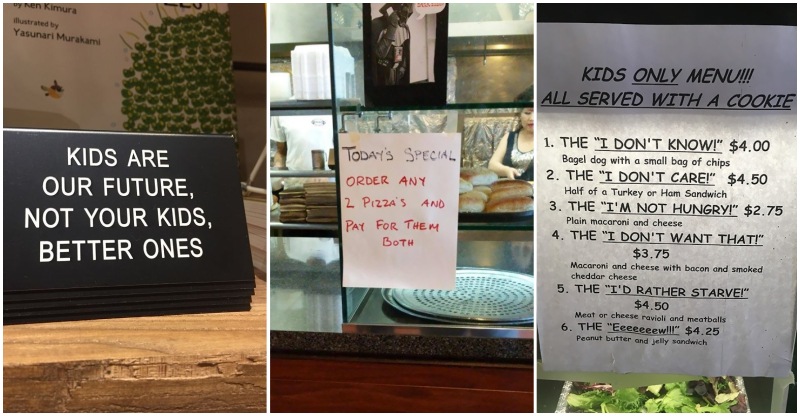 by Ken Kimura
illustrated by
Yasunari Murakami
KIDS ARE
OUR FUTURE,
NOT YOUR KIDS,
BETTER ONES
TODAY'S SPECIAL
ORDER ANY
2 PIZZA'S AND
PAY FOR THEM
BOTH
KIDS ONLY MENU!!!
ALL SERVED WITH A COOKIE
1. THE "I DON'T KNOW!" $4.00
Bagel dog with a small bag of chips
2. THE "I DON'T CARE!" $4.50
Half of a Turkey or Ham Sandwich
3. THE "I'M NOT HUNGRY!" $2.75
Plain macaroni and cheese
4. THE "I DON'T WANT THAT!"
$3.75
Macaroni and cheese with bacon and smoked
cheddar cheese
5. THE "I'D RATHER STARVE!"
$4.50
Meat or cheese ravioli and meatballs
6. THE "Eeeeeeew!!!" $4.25
Peanut butter and jelly sandwich